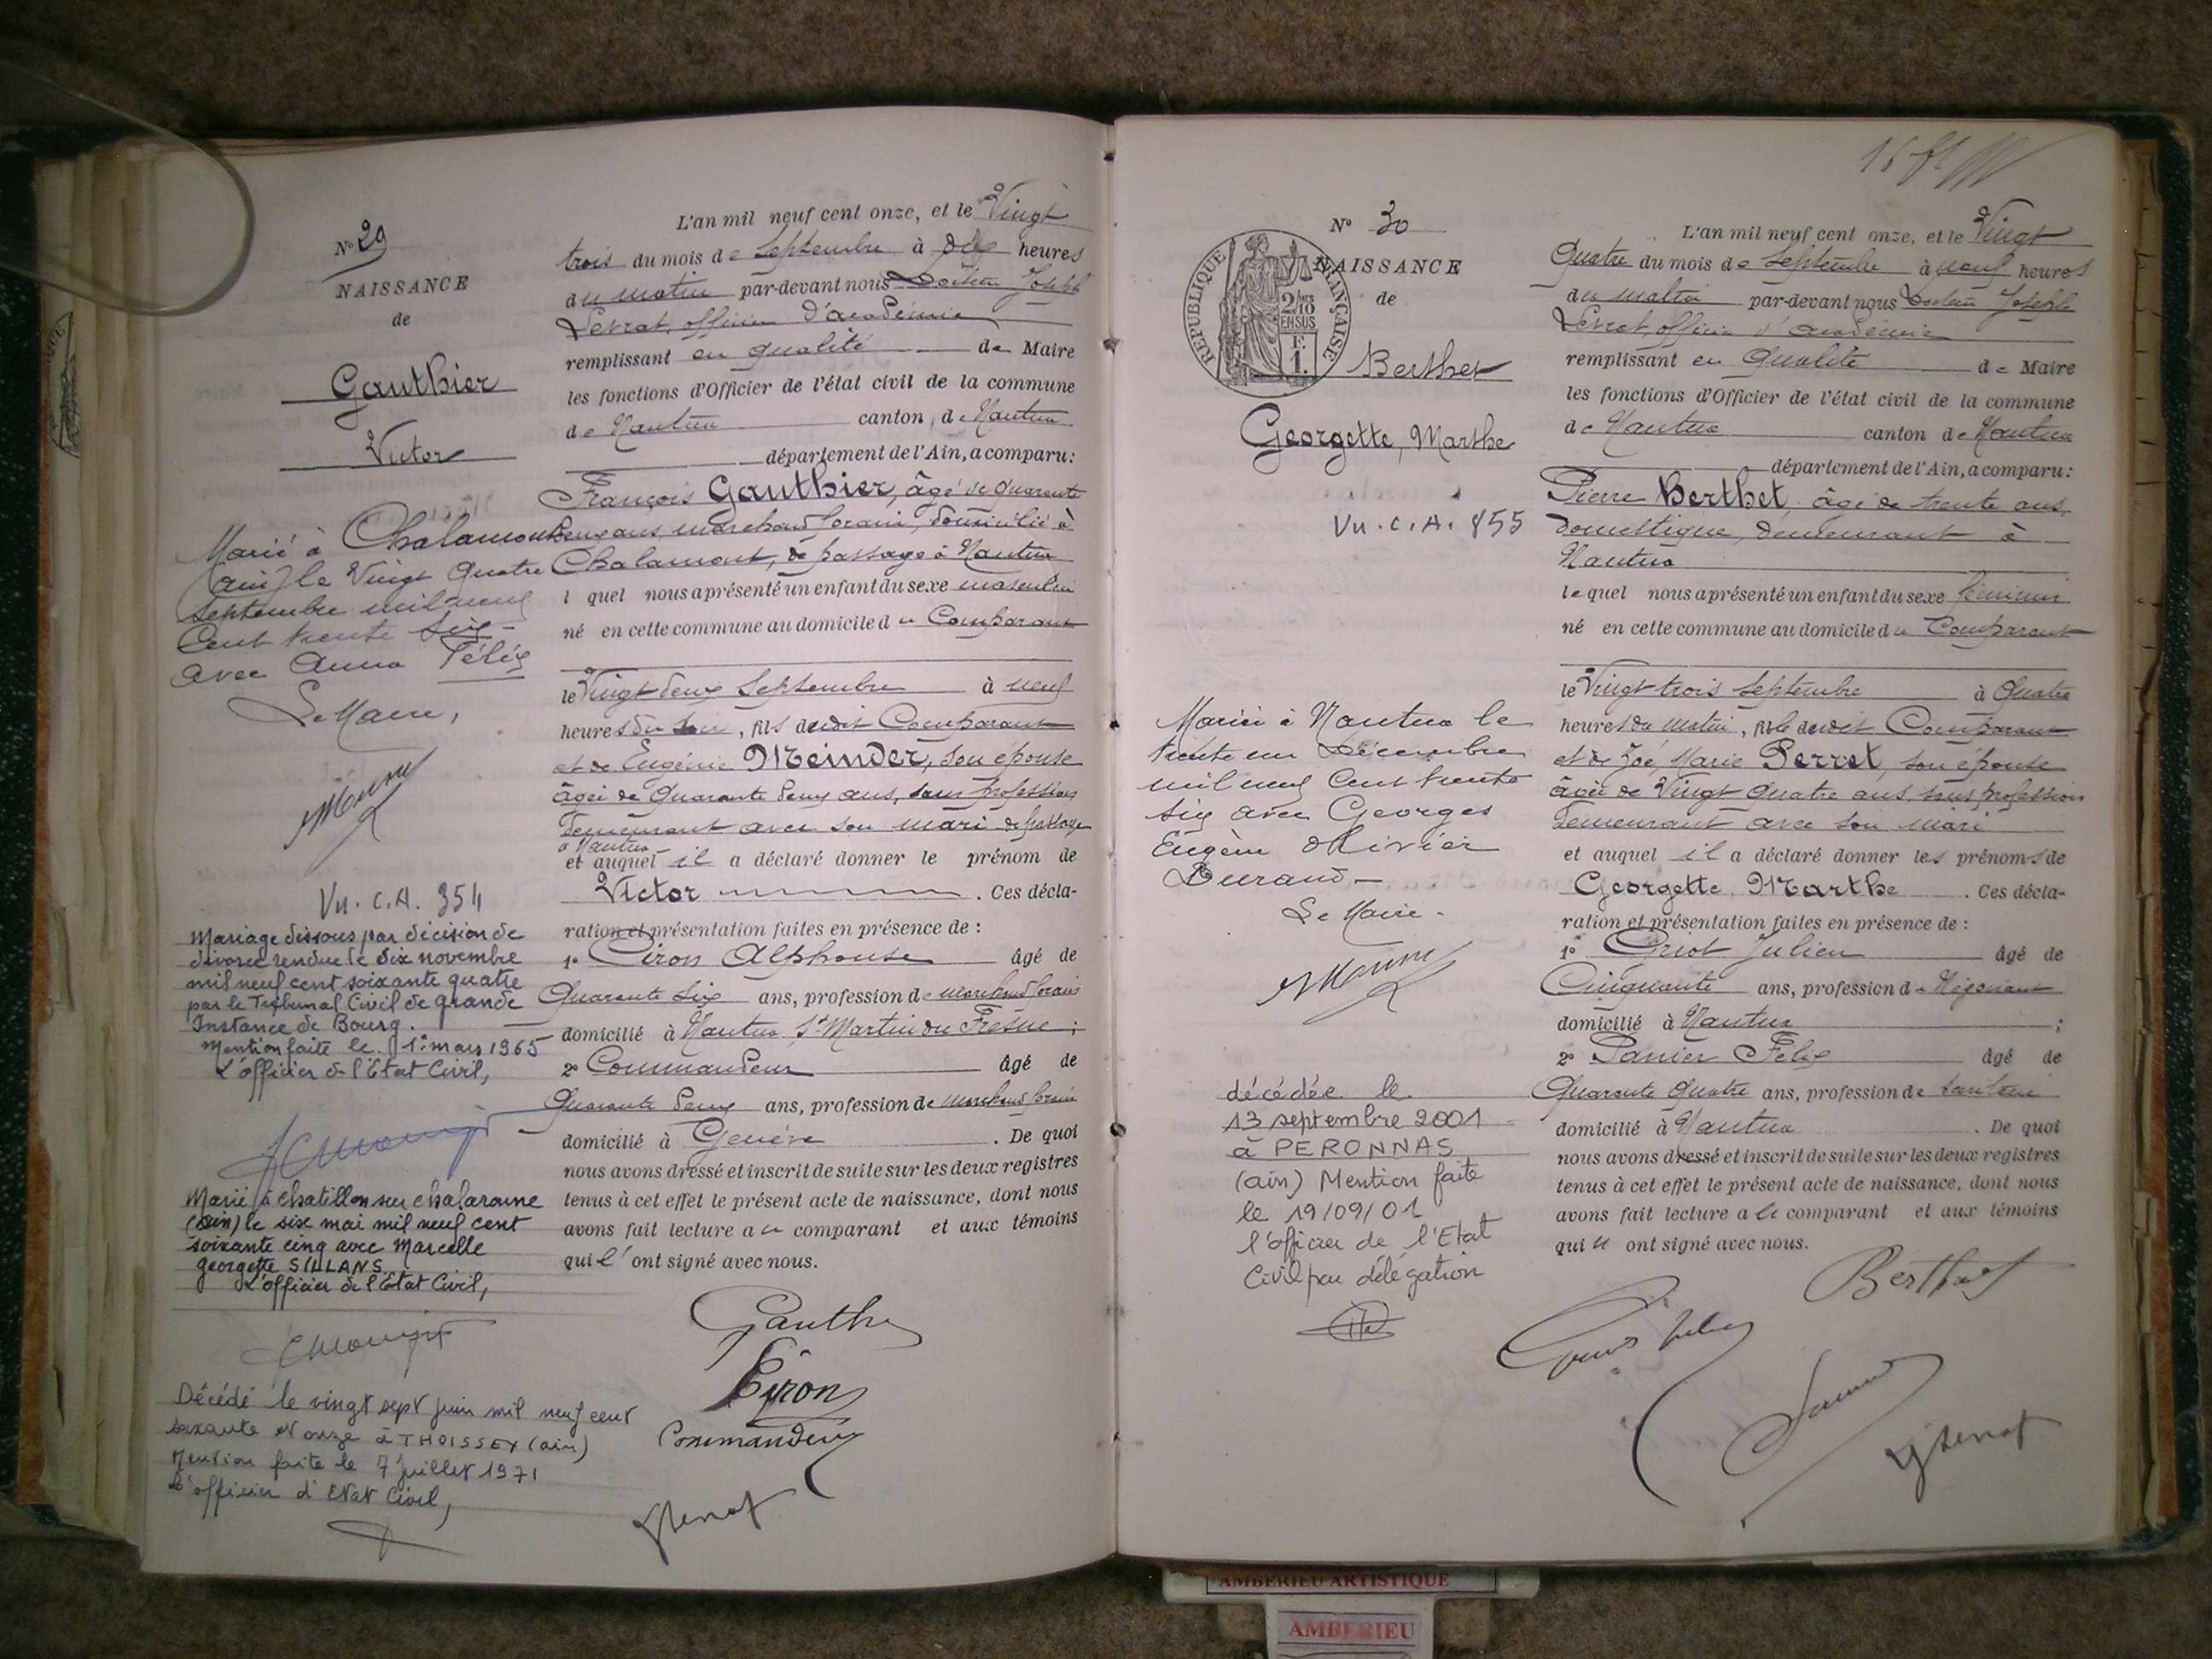 N° 29
NAISSANCE
de
Gauthier
Victor
Marié à Chalamont
(ain) le Vingt Quatre
septembre mil neuf
Cent trente six
avec Anna Félix
Le Maire,
Vu. C.A. 354
Mariage dissous par décision de
divorce rendue le dix novembre
mil neuf cent soixante quatre
par le Tribunal Civil de grande
Instance de Bourg.
Mention faite le 1er mars 1965
L'officier de l'Etat Civil,
Marié à chatillon sur chalaronne
(ain) le six mai mil neuf cent
soixante cinq avec Marcelle
georgette SILLANS.
L'officier de l'Etat Civil,
Décédé le vingt sept juin mil neuf cent
soixante et onze à THOISSEY (ain)
Mention faite le 7 juillet 1971
L'officier d'Etat Civil,
L'an mil neuf cent onze, et le Vingt
trois du mois de Septembre à dix heures
du matin par-devant nous Docteur Joseph
Levrat, officier d'académie
remplissant en qualité de Maire
les fonctions d'Officier de l'état civil de la commune
de Nantua canton de Nantua
département de l'Ain, a comparu:
François Gauthier, âgé de quarante
deux ans, marchand forain, domicilié à
Chalamont, de passage à Nantua
l quel nous a présenté un enfant du sexe masculin
né en cette commune au domicile du Comparant
le Vingt deux Septembre à neuf
heures du soir, fils dudit Comparant
et de Eugénie Meinder, son épouse
âgée de Quarante deux ans, sans profession
demeurant avec son mari de passage
à Nantua
et auquel il a déclaré donner le prénom de
Victor . Ces décla-
ration et présentation faites en présence de :
1° Ciron Alphonse âgé de
Quarante six ans, profession de marchand forain
domicilié à Nantua St Martin du Fresne ;
2° Commandeur âgé de
Quarante deux ans, profession de marchand forain
domicilié à Genève . De quoi
nous avons dressé et inscrit de suite sur les deux registres
tenus à cet effet le présent acte de naissance, dont nous
avons fait lecture au comparant et aux témoins
qui l' ont signé avec nous.
Gauthier
Ciron
Commandeur
N° 30
NAISSANCE
de
REPUBLIQUE FRANÇAISE
2/10
EN SUS
F.
1.
Berthet
Georgette, Marthe
Vu. C.A. 855
Mariée à Nantua le
trente un Décembre
mil neuf Cent trente
six avec Georges
Eugène Olivier
Durand
Le Maire
décédée le
13 septembre 2001
à PERONNAS
(ain) Mention faite
le 19/09/01
l'officier de l'Etat
Civil par délégation
L'an mil neuf cent onze, et le Vingt
Quatre du mois de Septembre à neuf heures
du matin par-devant nous Docteur Joseph
Levrat, officier d'académie
remplissant en Qualité de Maire
les fonctions d'Officier de l'état civil de la commune
de Nantua canton de Nantua
département de l'Ain, a comparu:
Pierre Berthet, âgé de trente ans,
domestique, demeurant à
Nantua
lequel nous a présenté un enfant du sexe féminin
né en cette commune au domicile du Comparant
le Vingt trois Septembre à Quatre
heures du matin, fille dudit Comparant
et de Zoé, Marie Perret, son épouse
âgée de Vingt Quatre ans, sans profession
demeurant avec son mari
et auquel il a déclaré donner les prénoms de
Georgette, Marthe . Ces décla-
ration et présentation faites en présence de :
1° Julien âgé de
Cinquante ans, profession de Négociant
domicilié à Nantua ;
2° Panier Félix âgé de
Quarante Quatre ans, profession de
domicilié à Nantua . De quoi
nous avons dressé et inscrit de suite sur les deux registres
tenus à cet effet le présent acte de naissance, dont nous
avons fait lecture a le comparant et aux témoins
qui ont signé avec nous.
Berthet
AMBERIEU ARTISTIQUE
AMBERIEU